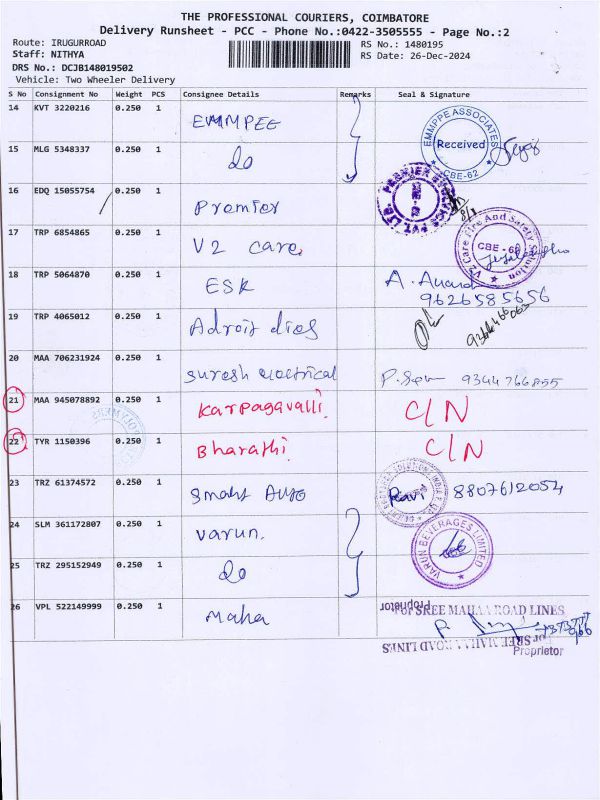 THE PROFESSIONAL COURIERS, COIMBATORE
Delivery Runsheet - PCC - Phone No.:0422-3505555 - Page No.:2
Route: IRUGURROAD
RS No.: 1480195
Staff: NITHYA
RS Date: 26-Dec-2024
DRS No.: DCJB148019502
Vehicle: Two Wheeler Delivery
S No Consignment No Weight PCS Consignee Details Remarks Seal & Signature
14 KVT 3220216 0.250 1 EMMPEE
EMMPPE ASSOCIATES Received CBE-62
15 MLG 5348337 0.250 1 do
16 EDQ 15055754 0.250 1 Premier
17 TRP 6854865 0.250 1 V2 care
V3 Care Fire And Safety Solution CBE - 62
18 TRP 5064870 0.250 1 ESK A. Anand
9626585656
19 TRP 4065012 0.250 1 Adroit dies
20 MAA 706231924 0.250 1 suresh electrical 9344766855
21 MAA 945078892 0.250 1 Karpagavalli C/N
22 TYR 1150396 0.250 1 Bharathi C/N
23 TRZ 61374572 0.250 1 Smart Auto Ravi 8807612054
24 SLM 361172807 0.250 1 varun
VARUN BEVERAGES LIMITED
25 TRZ 295152949 0.250 1 do
26 VPL 522149999 0.250 1 Maha
For SREE MAHAA ROAD LINES
Proprietor
For SREE MAHAA ROAD LINES
Proprietor